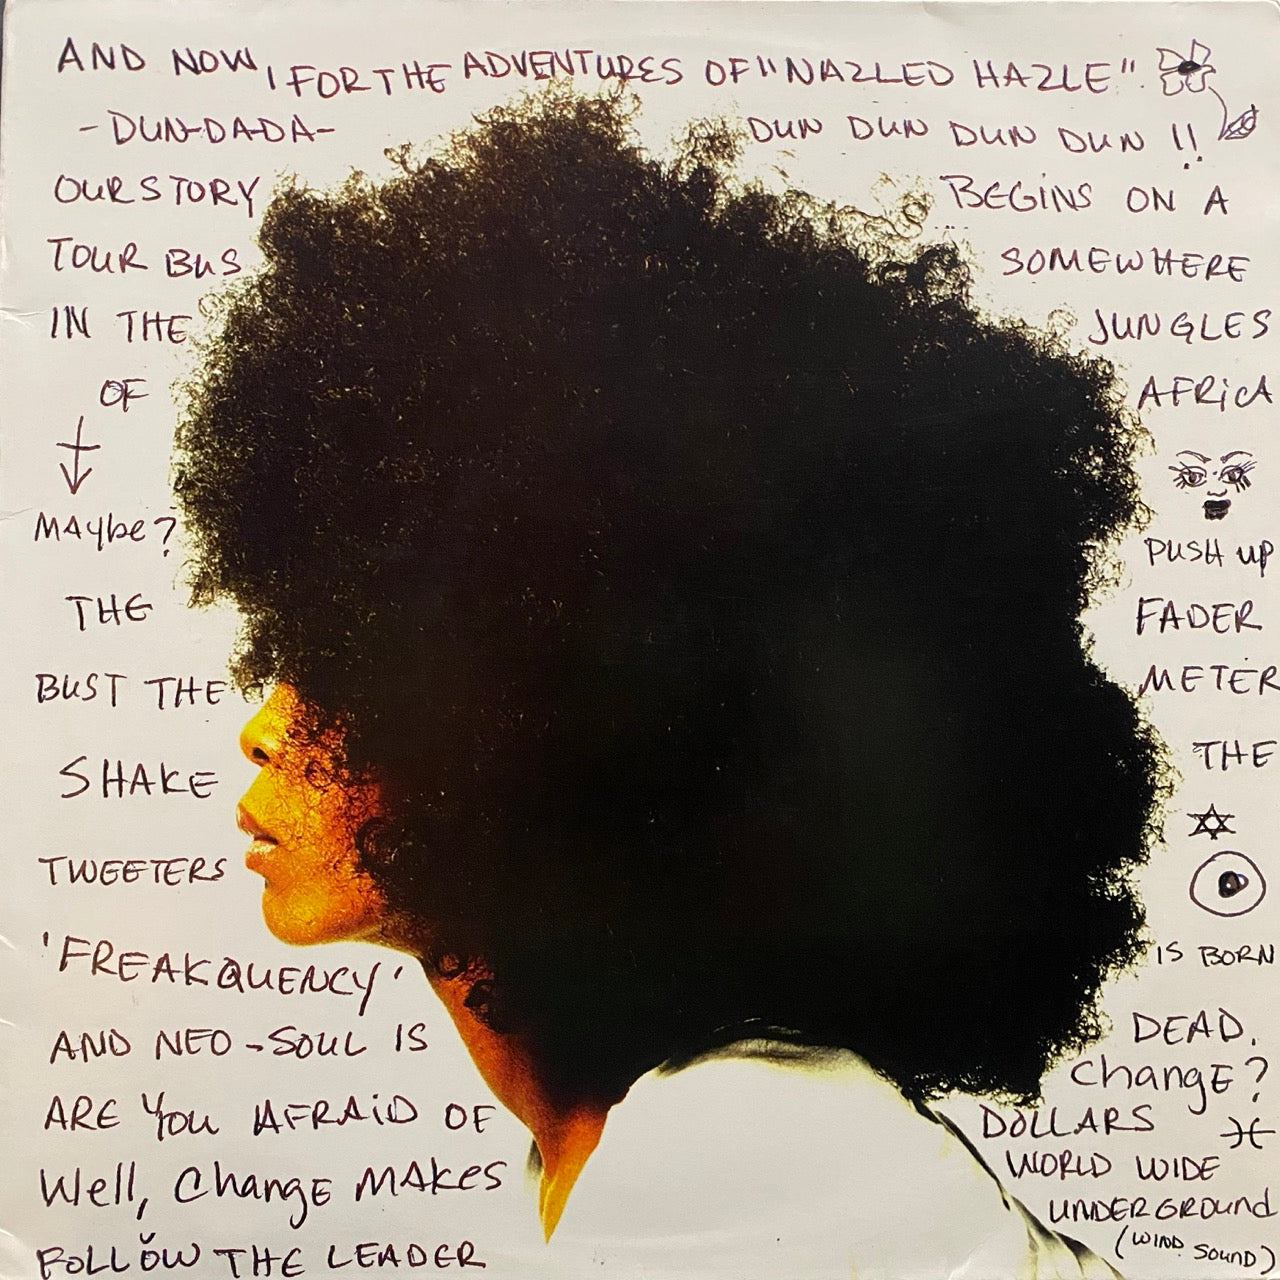 AND NOW, FOR THE ADVENTURES OF "NAZLED HAZLE".
-DUN-DA-DA- DUN DUN DUN DUN !!
OUR STORY BEGINS ON A
TOUR BUS SOMEWHERE
IN THE JUNGLES
OF AFRiCA
MAYbe? PUSH UP
THE FADER
BUST THE METER
SHAKE THE
TWEETERS
'FREAKQUENCY' IS BORN
AND NEO-SOUL IS DEAD.
ARE YOU AFRAiD OF ChangE?
Well, ChangE MAKES DOLLARS
FOLLOW THE LEADER
WORLD WIDE
UNDERGROUnd
(WIND SOUND)